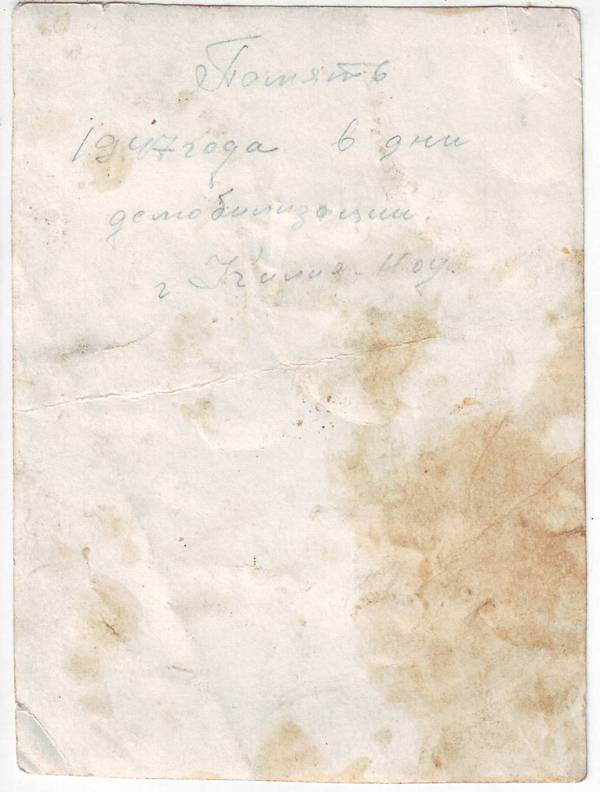 Память
1947 года в дни
демобилизации.
г Килия